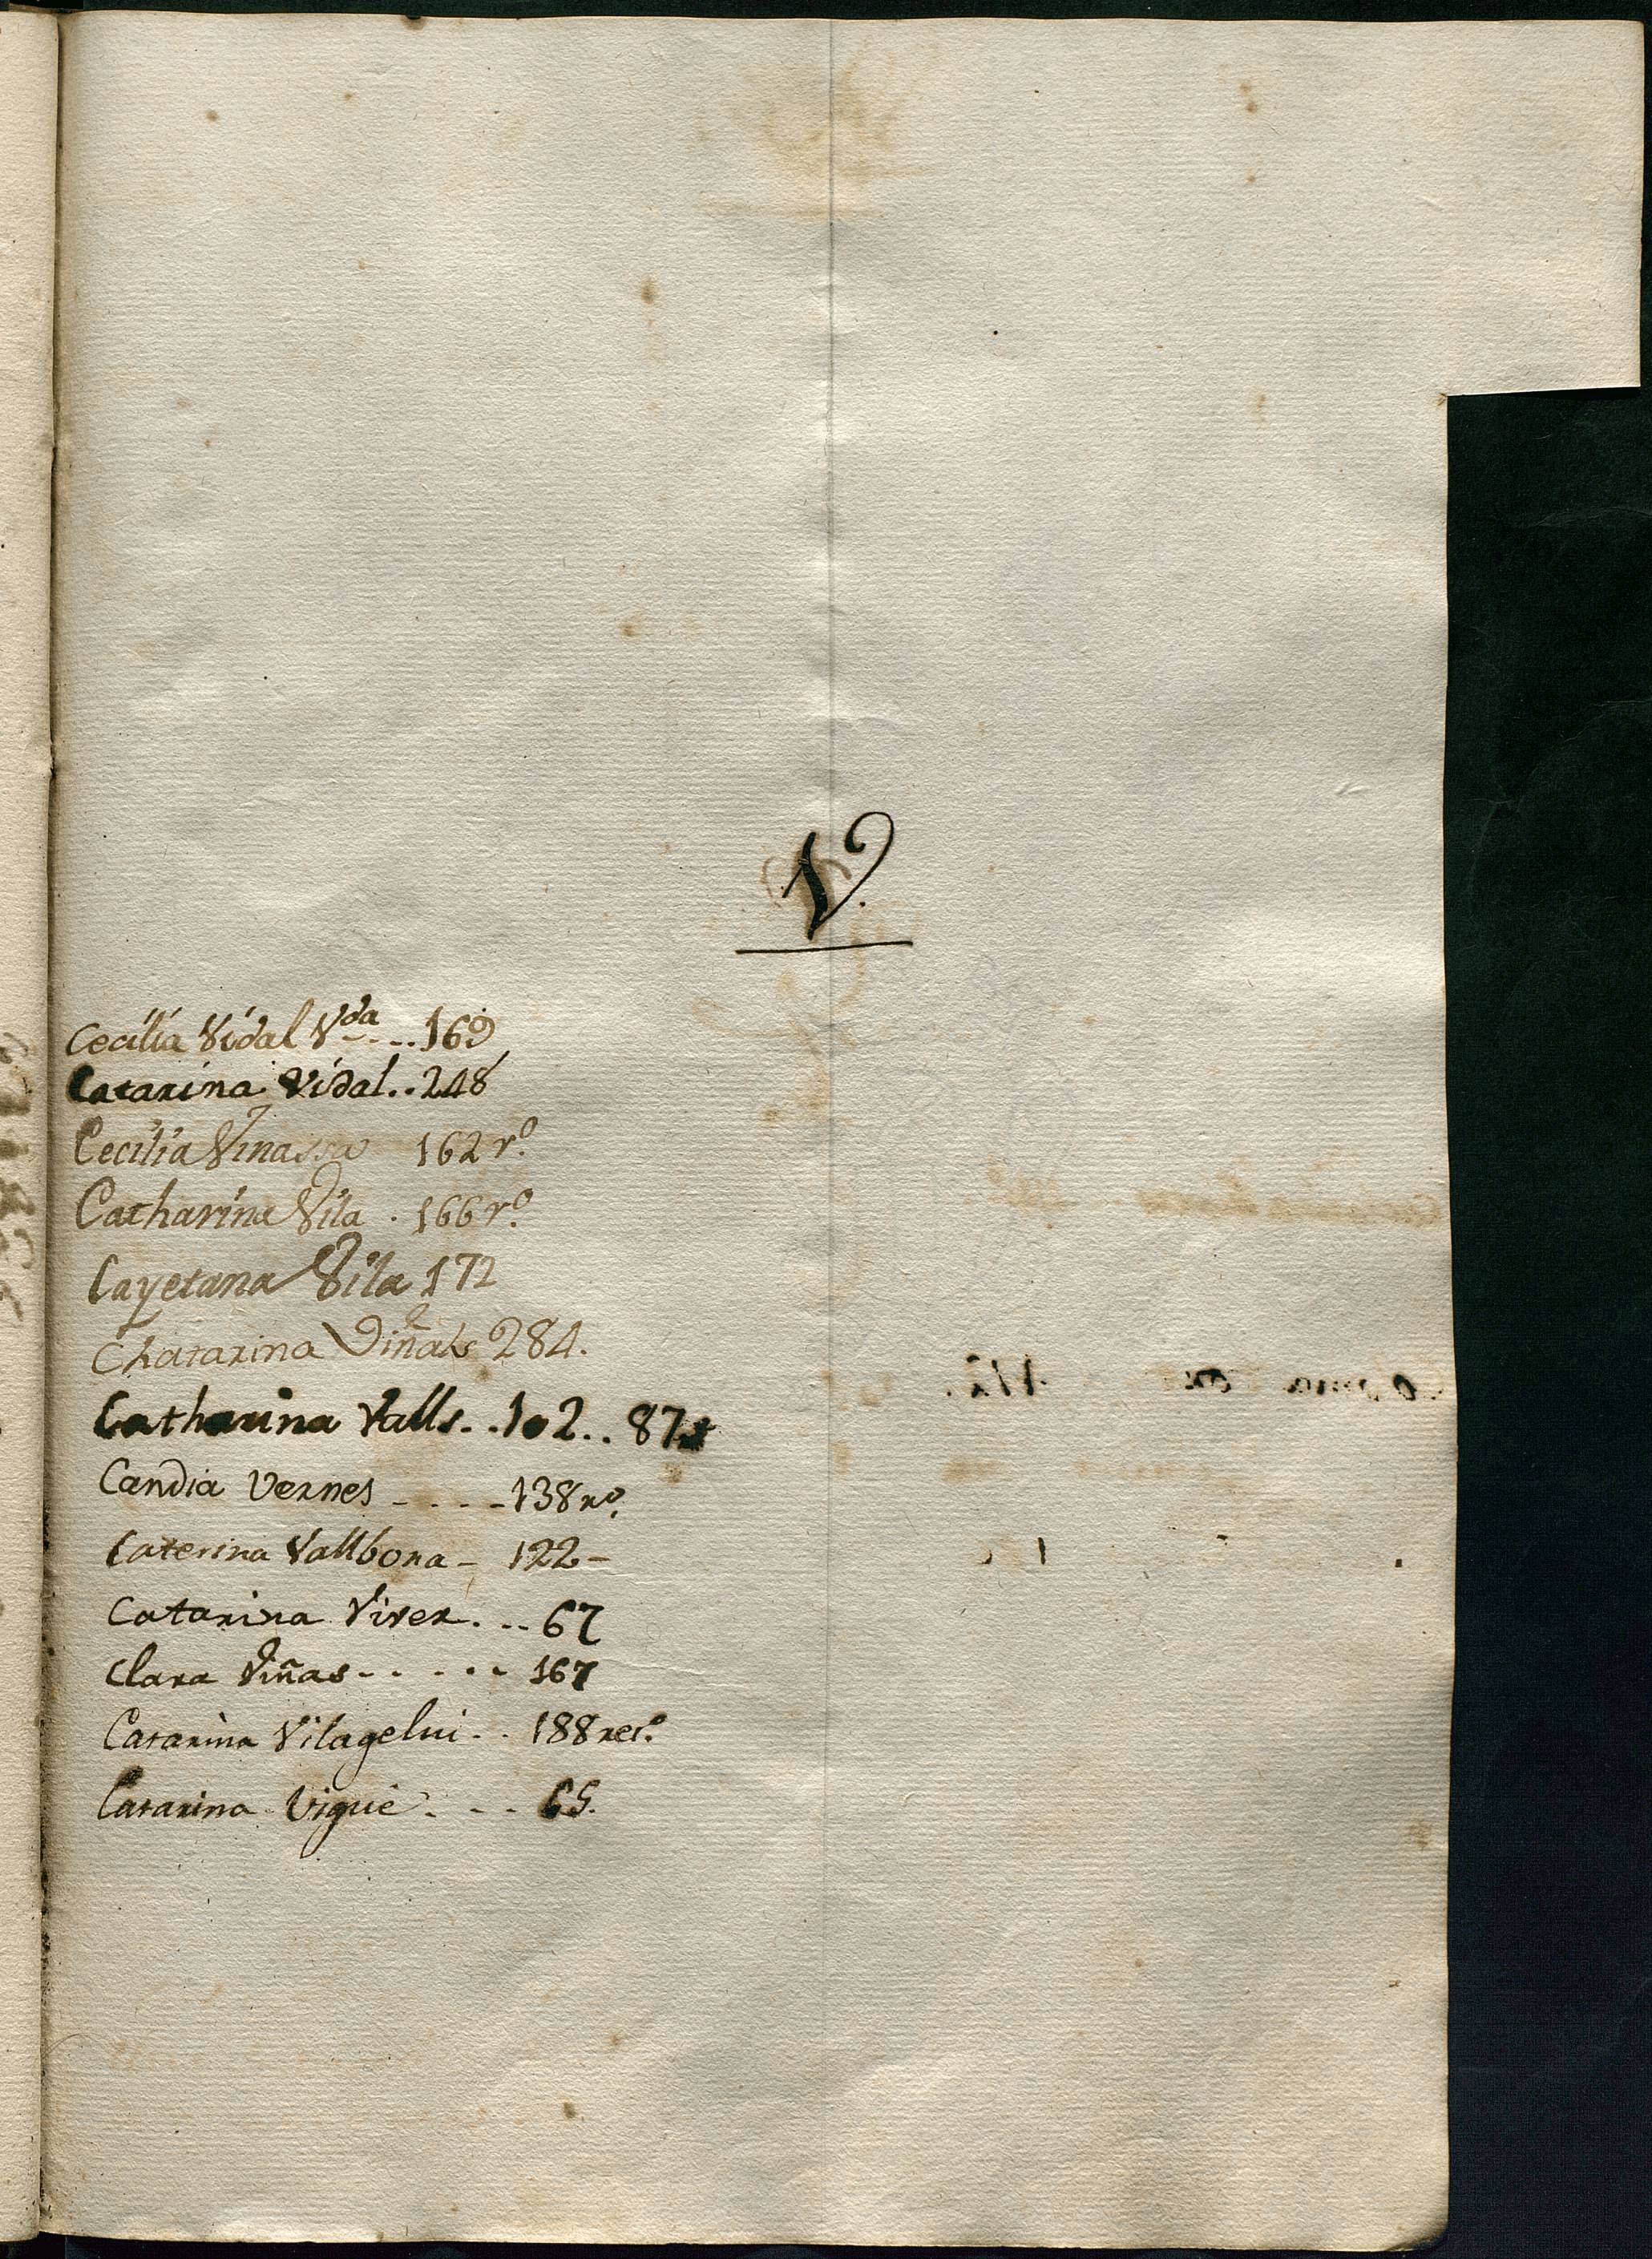 V.
Cecilia Vidal Vda... 169
Catarina Vidal.. 248
Cecilia Vinassa 162 rº
Catharina Vila . 166 rº
Cayetana Vila 172
Chatarina Viñals 284.
Catharina Valls.. 102.. 87
Candia Vernes - . . - 138 rº
Caterina Vallbona - 122 -
Catarina Viver. .. 67
Clara Viñas - . . . . 167
Catarina Vilagelui . . 188 retº
Catarina Viguè . . . 65.